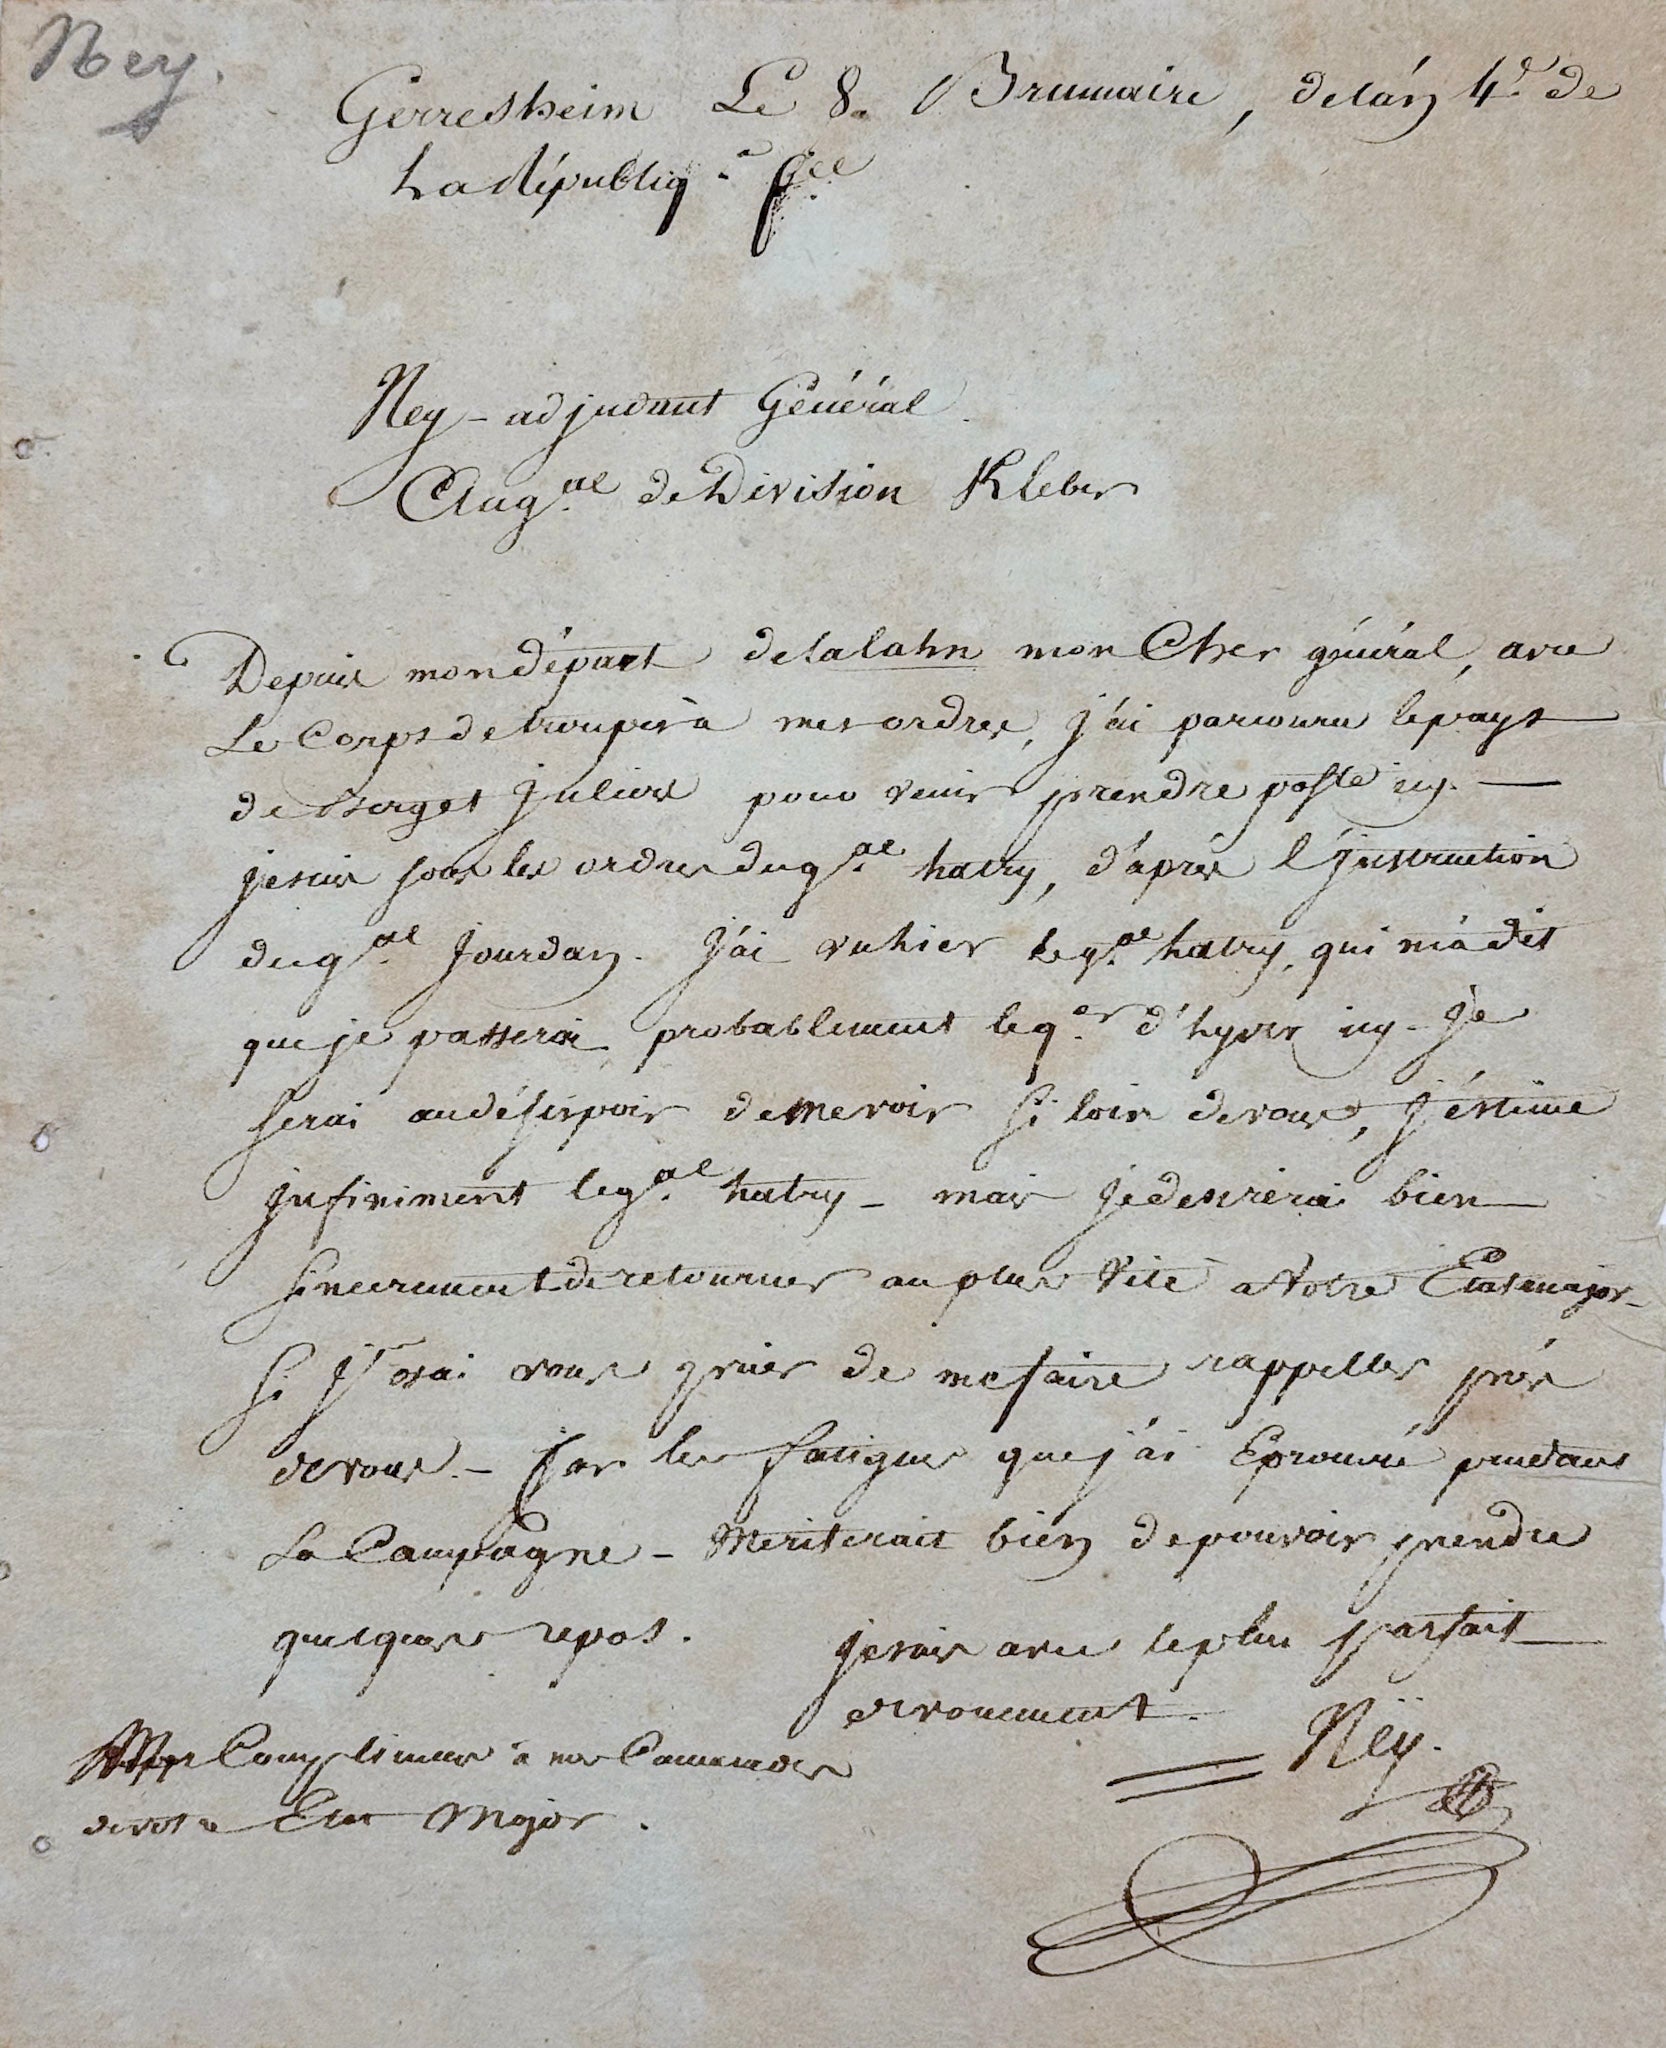 Ney.
Gerresheim Le 8. Brumaire, delán 4.e de
La Républiq.e fce
Ney - adjudant Général
Au g.al de Division Kleber
Depuis mon départ de la lahn mon Cher général, avec
Le Corps de troupes à mes ordres, j'ai parcouru le pays
de Berg et Juliers pour venir prendre poste icy. —
je suis sous les ordres du g.al hatry, d'après l'jnstruction
du g.al Jourdan. J'ai vu hier le g.al hatry, qui m'a dit
que je passerai probablement le q.er d'hyver icy - Je
serai au désespoir de me voir si loin de vous, j'éstime
jnfiniment le g.al hatry - mais je desirerai bien —
sincerement de retourner au plus vite a votre Etat major -
si j'osai vous prier de me faire rappeller près
de vous. - Car les fatigues que j'ai Eprouvé pendant
La Campagne - Meriterait bien de pouvoir prendre
quelques repos. je suis avec le plus parfait —
devouement.
Ney.
Mes Complimens à mes Camarades
de votre Etat Major.